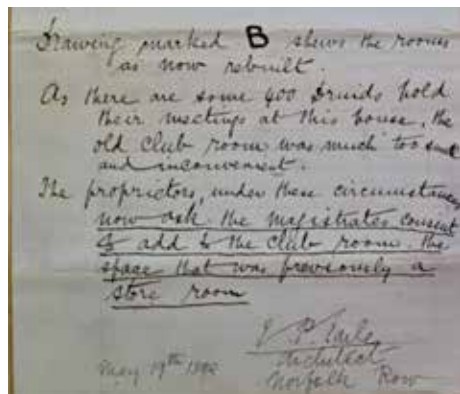 Drawing marked B shews the rooms
as now rebuilt.
As there are some 400 Druids hold
their meetings at this house, the
old club room was much too small
and inconvenient.
The proprietors, under these circumstances
now ask the magistrates consent
to add to the club room, the
space that was previously a
store room
P.
Architect
May 19th
Norfolk Row